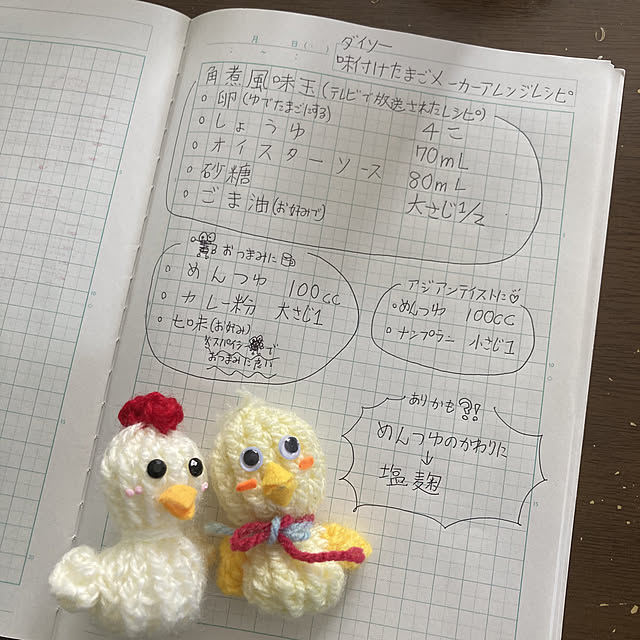 月　日（・）
ダイソー
味付けたまごメーカーアレンジレシピ
角煮風味玉（テレビで放送されたレシピ）
・卵（ゆでたまごにする）　4こ
・しょうゆ　70mL
・オイスターソース　80mL
・砂糖　大さじ1/2
・ごま油（お好みで）
おつまみに
・めんつゆ　100cc
・カレー粉　大さじ1
・七味（お好み）
おつまみに
アジアンテイストに♡
・めんつゆ　100cc
・ナンプラー　小さじ1
ありかも⁇!
めんつゆのかわりに
↓
塩麹